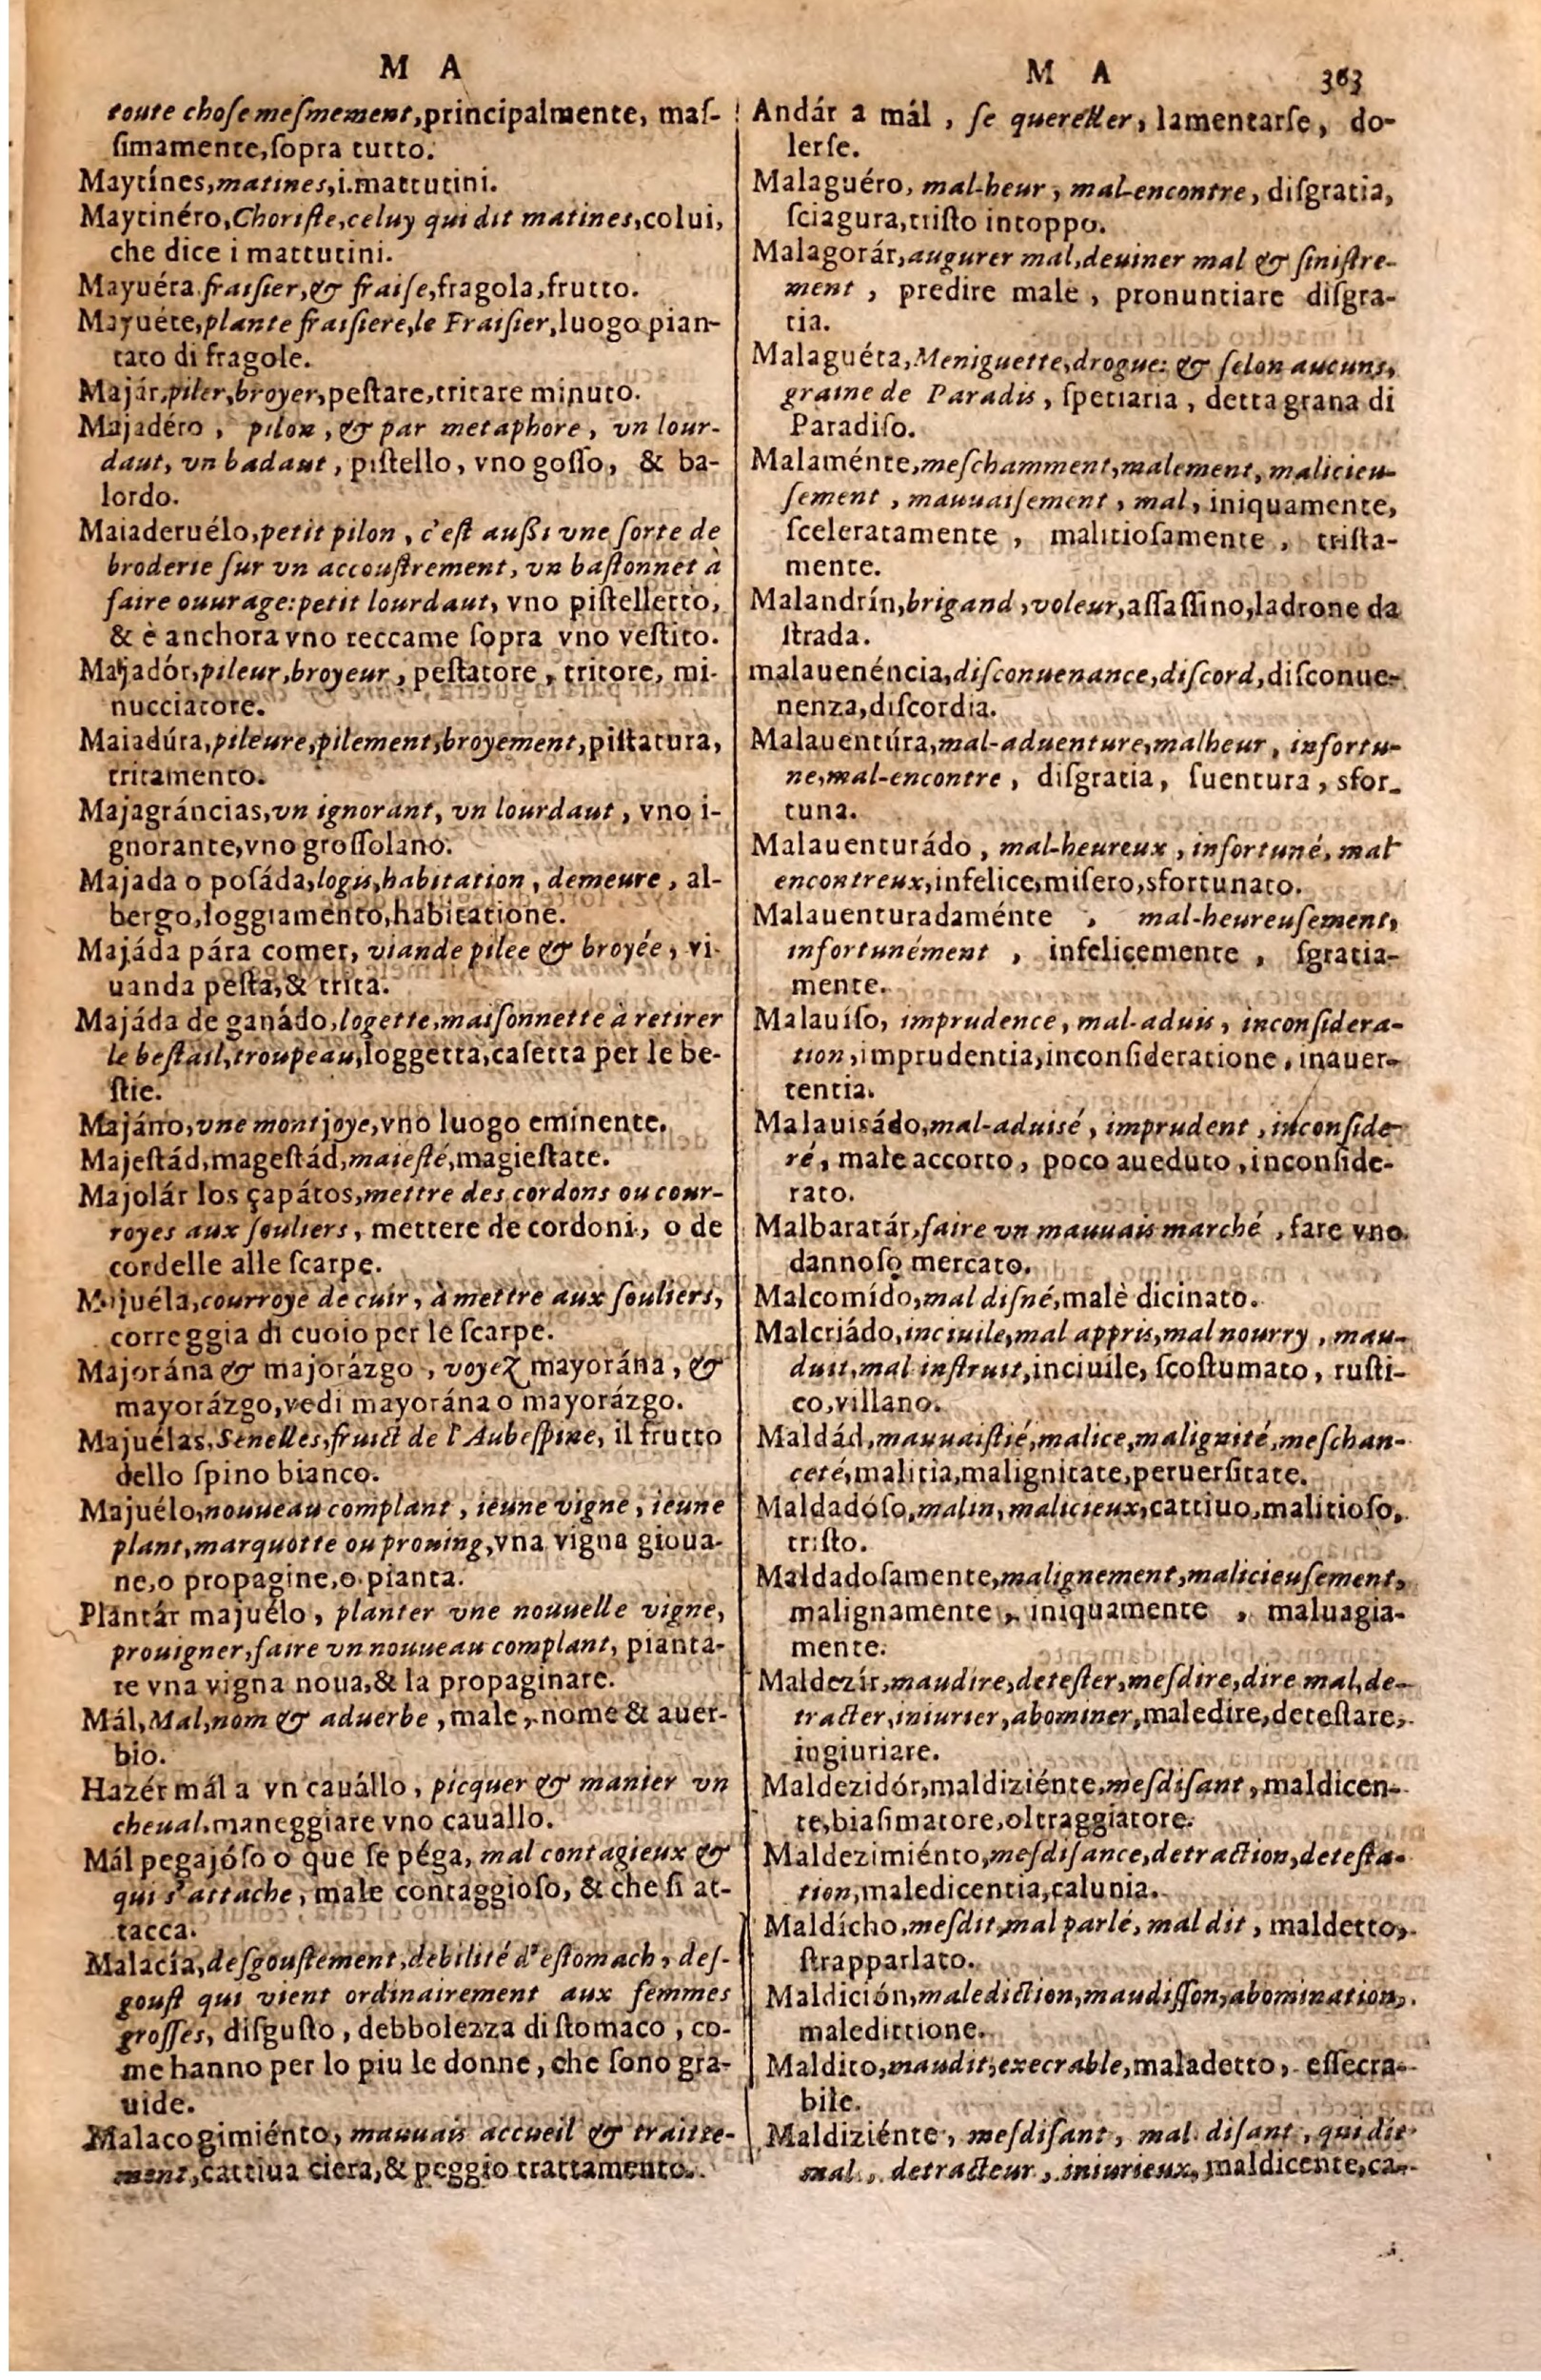 M A
toute choſe meſmement, principalmente, maſ-
ſimamente, ſopra tutto.
Maytínes, matines, i. mattutini.
Maytinéro, Choriſte, celuy qui dit matines, colui,
che dice i mattutini.
Mayuéra fraiſier, & fraiſe, fragola, frutto.
Mayuéte, plante fraiſiere, le Fraiſier, luogo pian-
tato di fragole.
Majár, piler, broyer, peſtare, tritare minuto.
Majadéro, pilon, & par metaphore, vn lour-
daut, vn badaut, piſtello, vno goſſo, & ba-
lordo.
Maiaderuélo, petit pilon, c'eſt auſſi vne ſorte de
broderie ſur vn accouſtrement, vn baſtonnet à
faire ouurage: petit lourdaut, vno piſtelletto,
& è anchora vno reccame ſopra vno veſtito.
Majadór, pileur, broyeur, peſtatore, tritore, mi-
nucciatore.
Maiadúra, pileure, pilement, broyement, piſtatura,
tritamento.
Majagráncias, vn ignorant, vn lourdaut, vno i-
gnorante, vno groſſolano.
Majada o poſáda, logis, habitation, demeure, al-
bergo, loggiamento, habitatione.
Majáda pára comer, viande pilee & broyée, vi-
uanda peſta, & trita.
Majáda de ganádo, logette, maiſonnette à retirer
le beſtail, troupeau, loggetta, caſetta per le be-
ſtie.
Majáno, vne montjoye, vno luogo eminente.
Majeſtád, mageſtád, maieſté, magieſtate.
Majolár los çapátos, mettre des cordons ou cour-
royes aux ſouliers, mettere de cordoni, o de
cordelle alle ſcarpe.
Majuéla, courroye de cuir, à mettre aux ſouliers,
correggia di cuoio per le ſcarpe.
Majorána & majorázgo, voyez mayorána, &
mayorázgo, vedi mayorána o mayorázgo.
Majuélas, Senelles, fruict de l'Aubeſpine, il frutto
dello ſpino bianco.
Majuélo, nouueau complant, ieune vigne, ieune
plant, marquotte ou prouing, vna vigna gioua-
ne, o propagine, o pianta.
Plantár majuélo, planter vne nouuelle vigne,
prouigner, faire vn nouueau complant, pianta-
re vna vigna noua, & la propaginare.
Mál, Mal, nom & aduerbe, male, nome & auer-
bio.
Hazér mál a vn cauállo, picquer & manier vn
cheual, maneggiare vno cauallo.
Mál pegajóſo o que ſe péga, mal contagieux &
qui s'attache, male contaggioſo, & che ſi at-
tacca.
Malacía, deſgouſtement, debilité d'eſtomach, deſ-
gouſt qui vient ordinairement aux femmes
groſſes, diſguſto, debbolezza di ſtomaco, co-
me hanno per lo piu le donne, che ſono gra-
uide.
Malacogimiénto, mauuais accueil & traitte-
ment, cattiua ciera, & peggio trattamento.
M A 363
Andár a mál, ſe quereller, lamentarſe, do-
lerſe.
Malaguéro, mal-heur, mal-encontre, diſgratia,
ſciagura, triſto intoppo.
Malagorár, augurer mal, deuiner mal & ſiniſtre-
ment, predire male, pronuntiare diſgra-
tia.
Malaguéta, Meniguette, drogue: & ſelon aucuns,
graine de Paradis, ſpetiaria, detta grana di
Paradiſo.
Malaménte, meſchamment, malement, malicieu-
ſement, mauuaiſement, mal, iniquamente,
ſceleratamente, malitioſamente, triſta-
mente.
Malandrín, brigand, voleur, aſſaſſino, ladrone da
ſtrada.
malauenéncia, diſconuenance, diſcord, diſconue-
nenza, diſcordia.
Malauentúra, mal-aduenture, malheur, infortu-
ne, mal-encontre, diſgratia, ſuentura, sfor-
tuna.
Malauenturádo, mal-heureux, infortuné, mal
encontreux, infelice, miſero, sfortunato.
Malauenturadaménte, mal-heureuſement,
infortunément, infelicemente, ſgratia-
mente.
Malauíſo, imprudence, mal-aduis, inconſidera-
tion, imprudentia, inconſideratione, inauer-
tentia.
Malauisádo, mal-aduiſé, imprudent, inconſide-
ré, male accorto, poco aueduto, inconſide-
rato.
Malbaratár, faire vn mauuais marché, fare vno
dannoſo mercato.
Malcomído, mal diſné, malè dicinato.
Malcriádo, inciuile, mal appris, mal nourry, mau-
duit, mal inſtruit, inciuile, ſcoſtumato, ruſti-
co, villano.
Maldád, mauuaiſtié, malice, malignité, meſchan-
ceté, malitia, malignitate, peruerſitate.
Maldadóſo, malin, malicieux, cattiuo, malitioſo,
triſto.
Maldadoſamente, malignement, malicieuſement,
malignamente, iniquamente, maluagia-
mente.
Maldezír, maudire, deteſter, meſdire, dire mal, de-
tracter, iniurier, abominer, maledire, deteſtare,
ingiuriare.
Maldezidór, maldiziénte, meſdiſant, maldicen-
te, biaſimatore, oltraggiatore.
Maldezimiénto, meſdiſance, detraction, deteſta-
tion, maledicentia, calunia.
Maldícho, meſdit, mal parlé, mal dit, maldetto,
ſtrapparlato.
Maldición, malediction, maudiſſon, abomination,
maledittione.
Maldito, maudit, execrable, maladetto, eſſecra-
bile.
Maldiziénte, meſdiſant, mal diſant, qui dit
mal, detracteur, iniurieux, maldicente, ca-